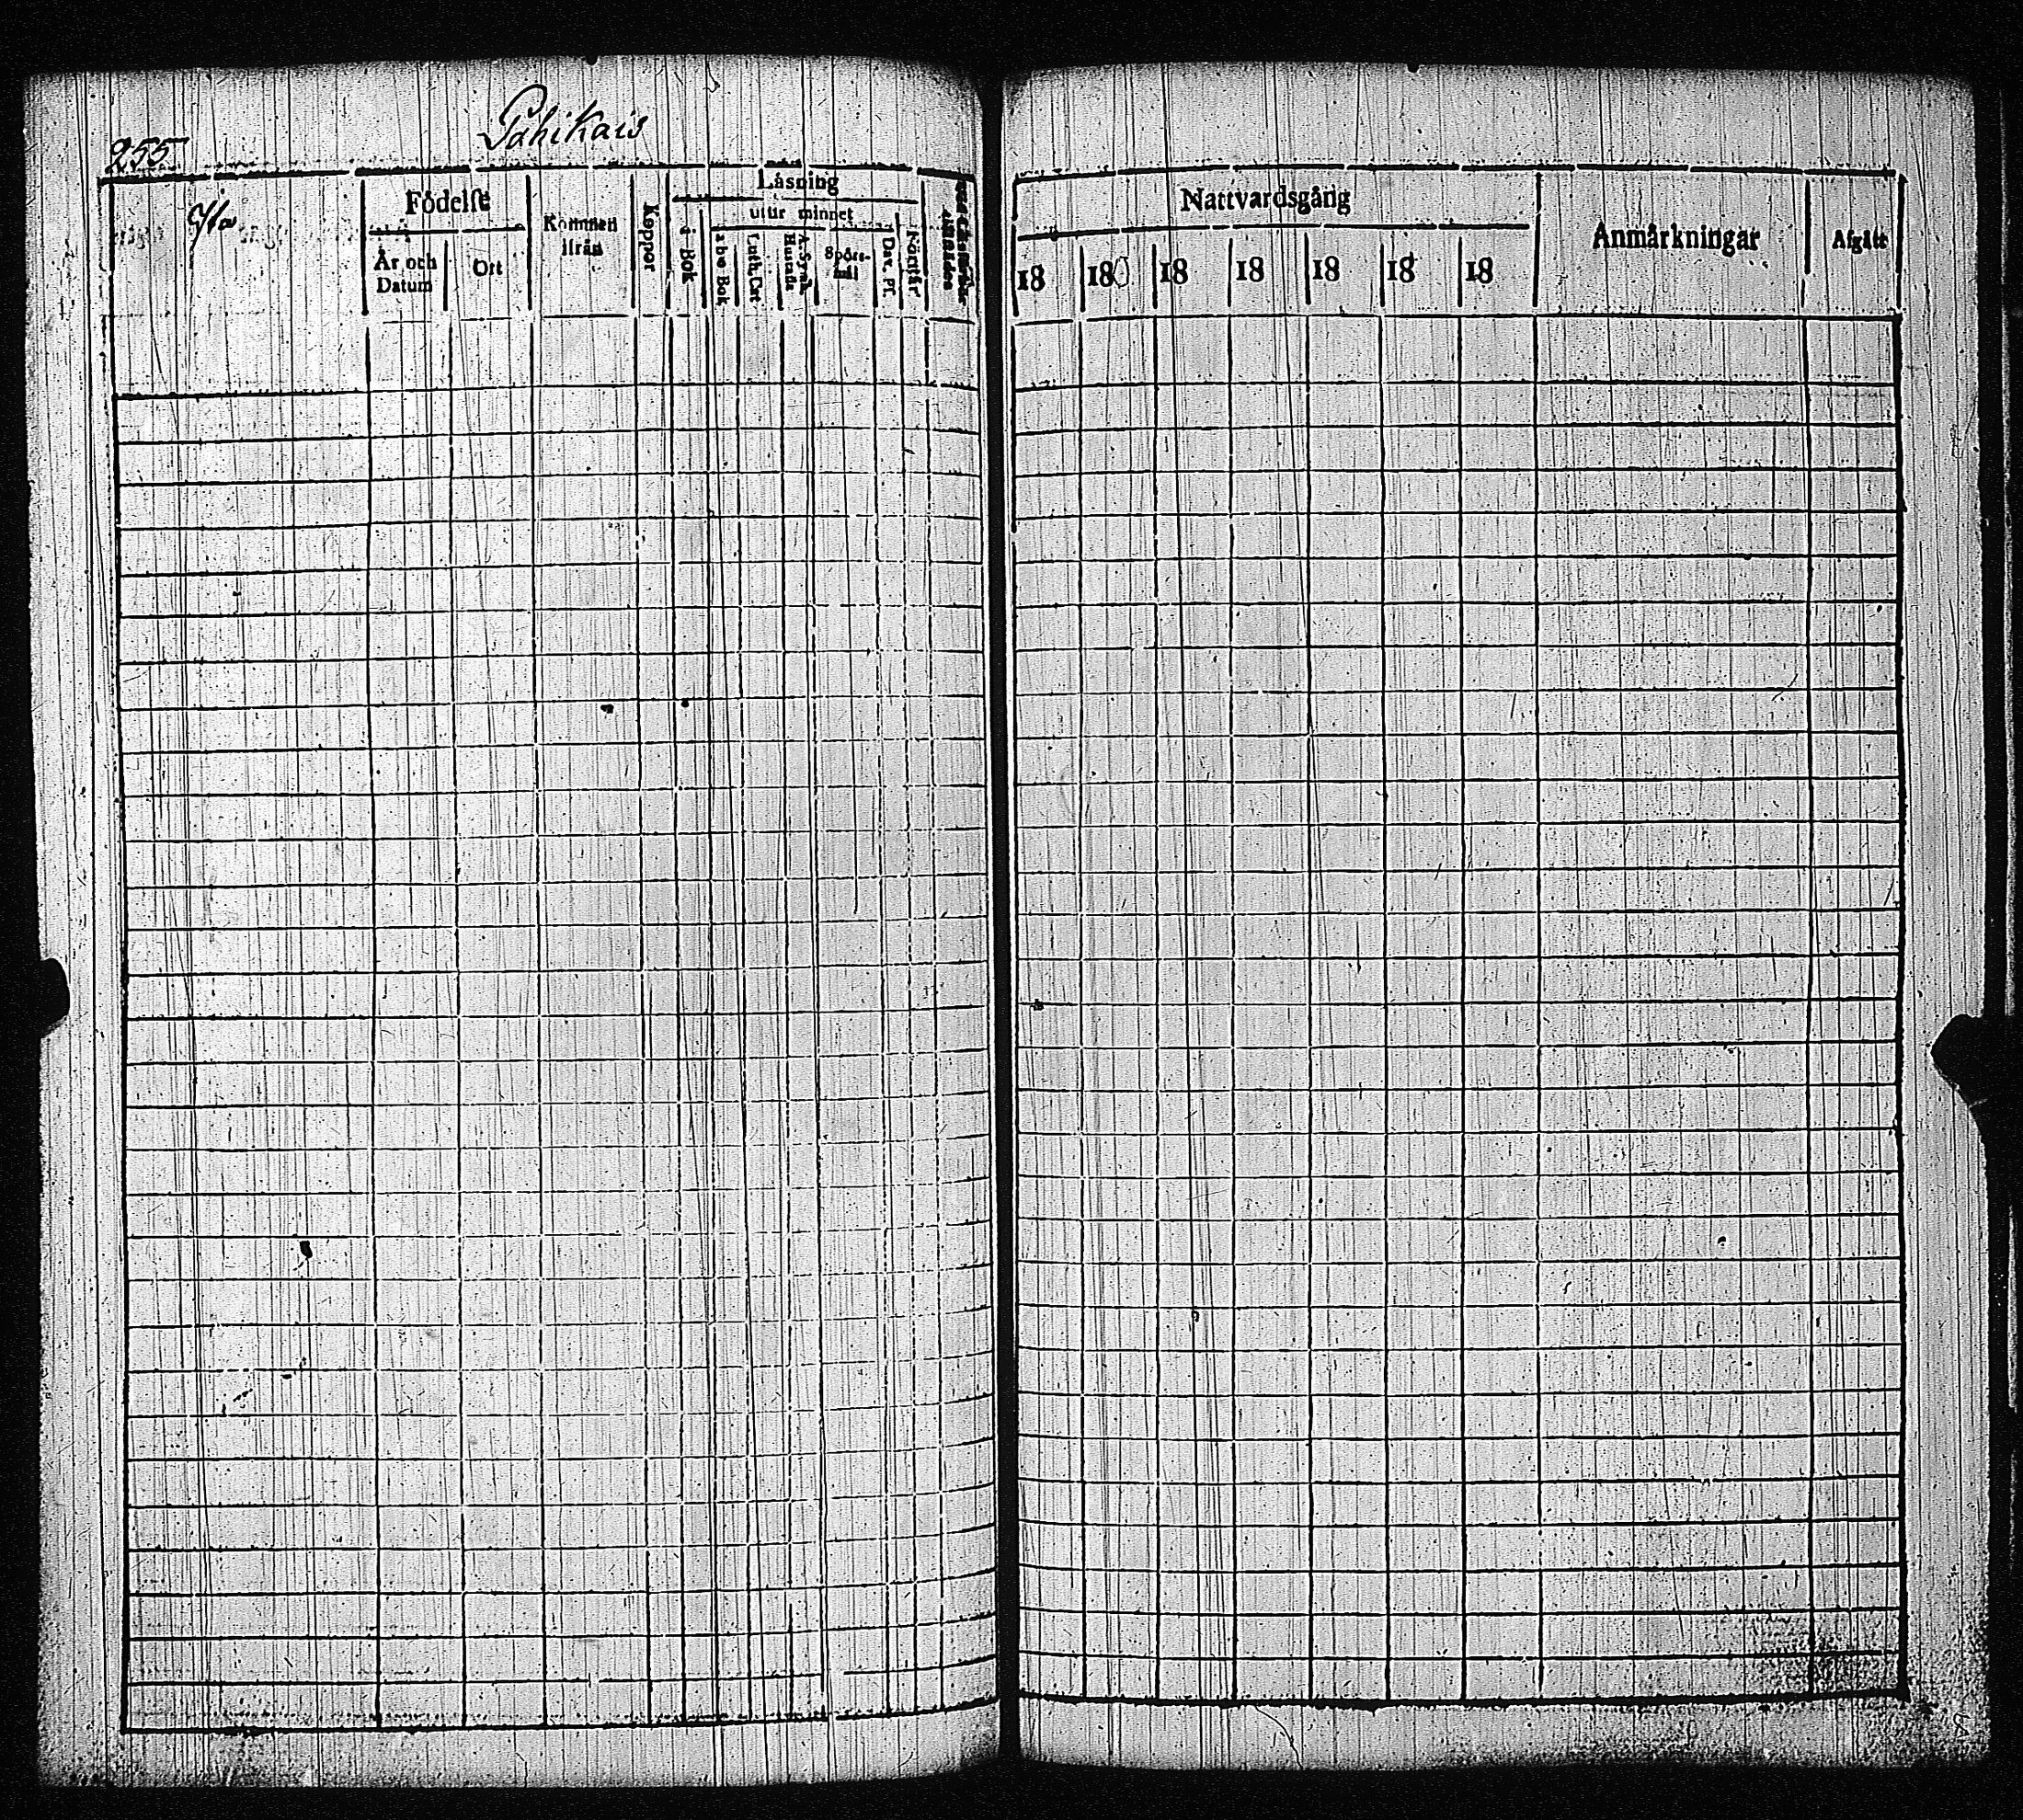 Pahikais
255
Födelse
År och Datum
Ort
Kommen ifrån
Koppor
Läsning
i Bok
utur minnet
a b c Bok
Luth. Cat
A. Symb. Hustafla
Spörsmål
Dav. Ps.
Förstår
Nattvardsgång
18 18 18 18 18 18 18
Anmärkningar
Afgått